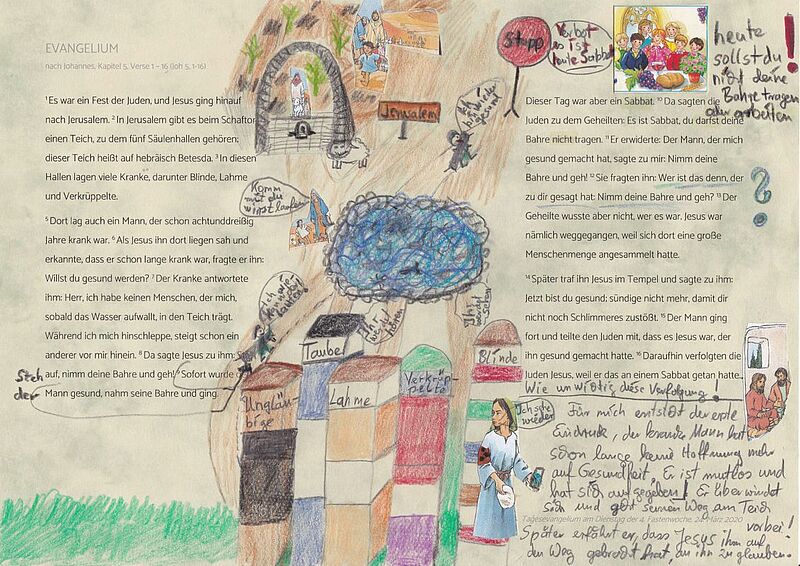 EVANGELIUM
nach Johannes, Kapitel 5, Verse 1 – 16 (Joh 5, 1-16)
¹Es war ein Fest der Juden, und Jesus ging hinauf
nach Jerusalem. ² In Jerusalem gibt es beim Schaftor
einen Teich, zu dem fünf Säulenhallen gehören;
dieser Teich heißt auf hebräisch Betesda. ³ In diesen
Hallen lagen viele Kranke, darunter Blinde, Lahme
und Verkrüppelte.
⁵ Dort lag auch ein Mann, der schon achtunddreißig
Jahre krank war. ⁶ Als Jesus ihn dort liegen sah und
erkannte, dass er schon lange krank war, fragte er ihn:
Willst du gesund werden? ⁷ Der Kranke antwortete
ihm: Herr, ich habe keinen Menschen, der mich,
sobald das Wasser aufwallt, in den Teich trägt.
Während ich mich hinschleppe, steigt schon ein
anderer vor mir hinein. ⁸ Da sagte Jesus zu ihm: Steh
auf, nimm deine Bahre und geh! ⁹ Sofort wurde der
Mann gesund, nahm seine Bahre und ging.
Steh
der
Jerusalem
Komm
mit du
wirst laufen
Ich
bin wieder
gesund
Ich
kann
laufen
Taube
Ich
werde
hören
Ich
werde
sehen
Ungläu-
bige
Lahme
Verkrüp-
pelte
Blinde
Ich sehe
wieder
Stopp
Verbot
es ist
heute Sabbat
heute
sollst du
nicht deine
Bahre tragen
oder arbeiten
!
Dieser Tag war aber ein Sabbat. ¹⁰ Da sagten die
Juden zu dem Geheilten: Es ist Sabbat, du darfst deine
Bahre nicht tragen. ¹¹ Er erwiderte: Der Mann, der mich
gesund gemacht hat, sagte zu mir: Nimm deine
Bahre und geh! ¹² Sie fragten ihn: Wer ist das denn, der
zu dir gesagt hat: Nimm deine Bahre und geh? ¹³ Der
Geheilte wusste aber nicht, wer es war. Jesus war
nämlich weggegangen, weil sich dort eine große
Menschenmenge angesammelt hatte.
?
¹⁴ Später traf ihn Jesus im Tempel und sagte zu ihm:
Jetzt bist du gesund; sündige nicht mehr, damit dir
nicht noch Schlimmeres zustößt. ¹⁵ Der Mann ging
fort und teilte den Juden mit, dass es Jesus war, der
ihn gesund gemacht hatte. ¹⁶ Daraufhin verfolgten die
Juden Jesus, weil er das an einem Sabbat getan hatte.
Wie unwichtig diese Verfolgung!
Für mich entsteht der erste
Eindruck, der kranke Mann hat
schon lange keine Hoffnung mehr
auf Gesundheit. Er ist mutlos und
hat sich aufgegeben! Er überwindet
sich und geht seinen Weg am Teich
vorbei!
Tagesevangelium am Dienstag der 4. Fastenwoche, 24. März 2020
Später erfährt er, dass Jesus ihm auf
den Weg gebracht hat, an ihn zu glauben.